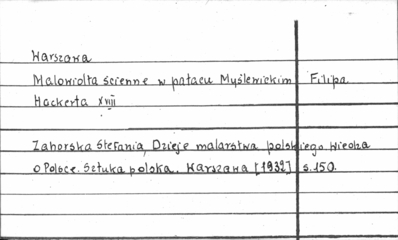 Warszawa
Malowidła ścienne w pałacu Myślewickim Filipa
Hackerta XVIII
Zahorska Stefania, Dzieje malarstwa polskiego. Wiedza
o Polsce. Sztuka polska. Warszawa [1932] s. 150.